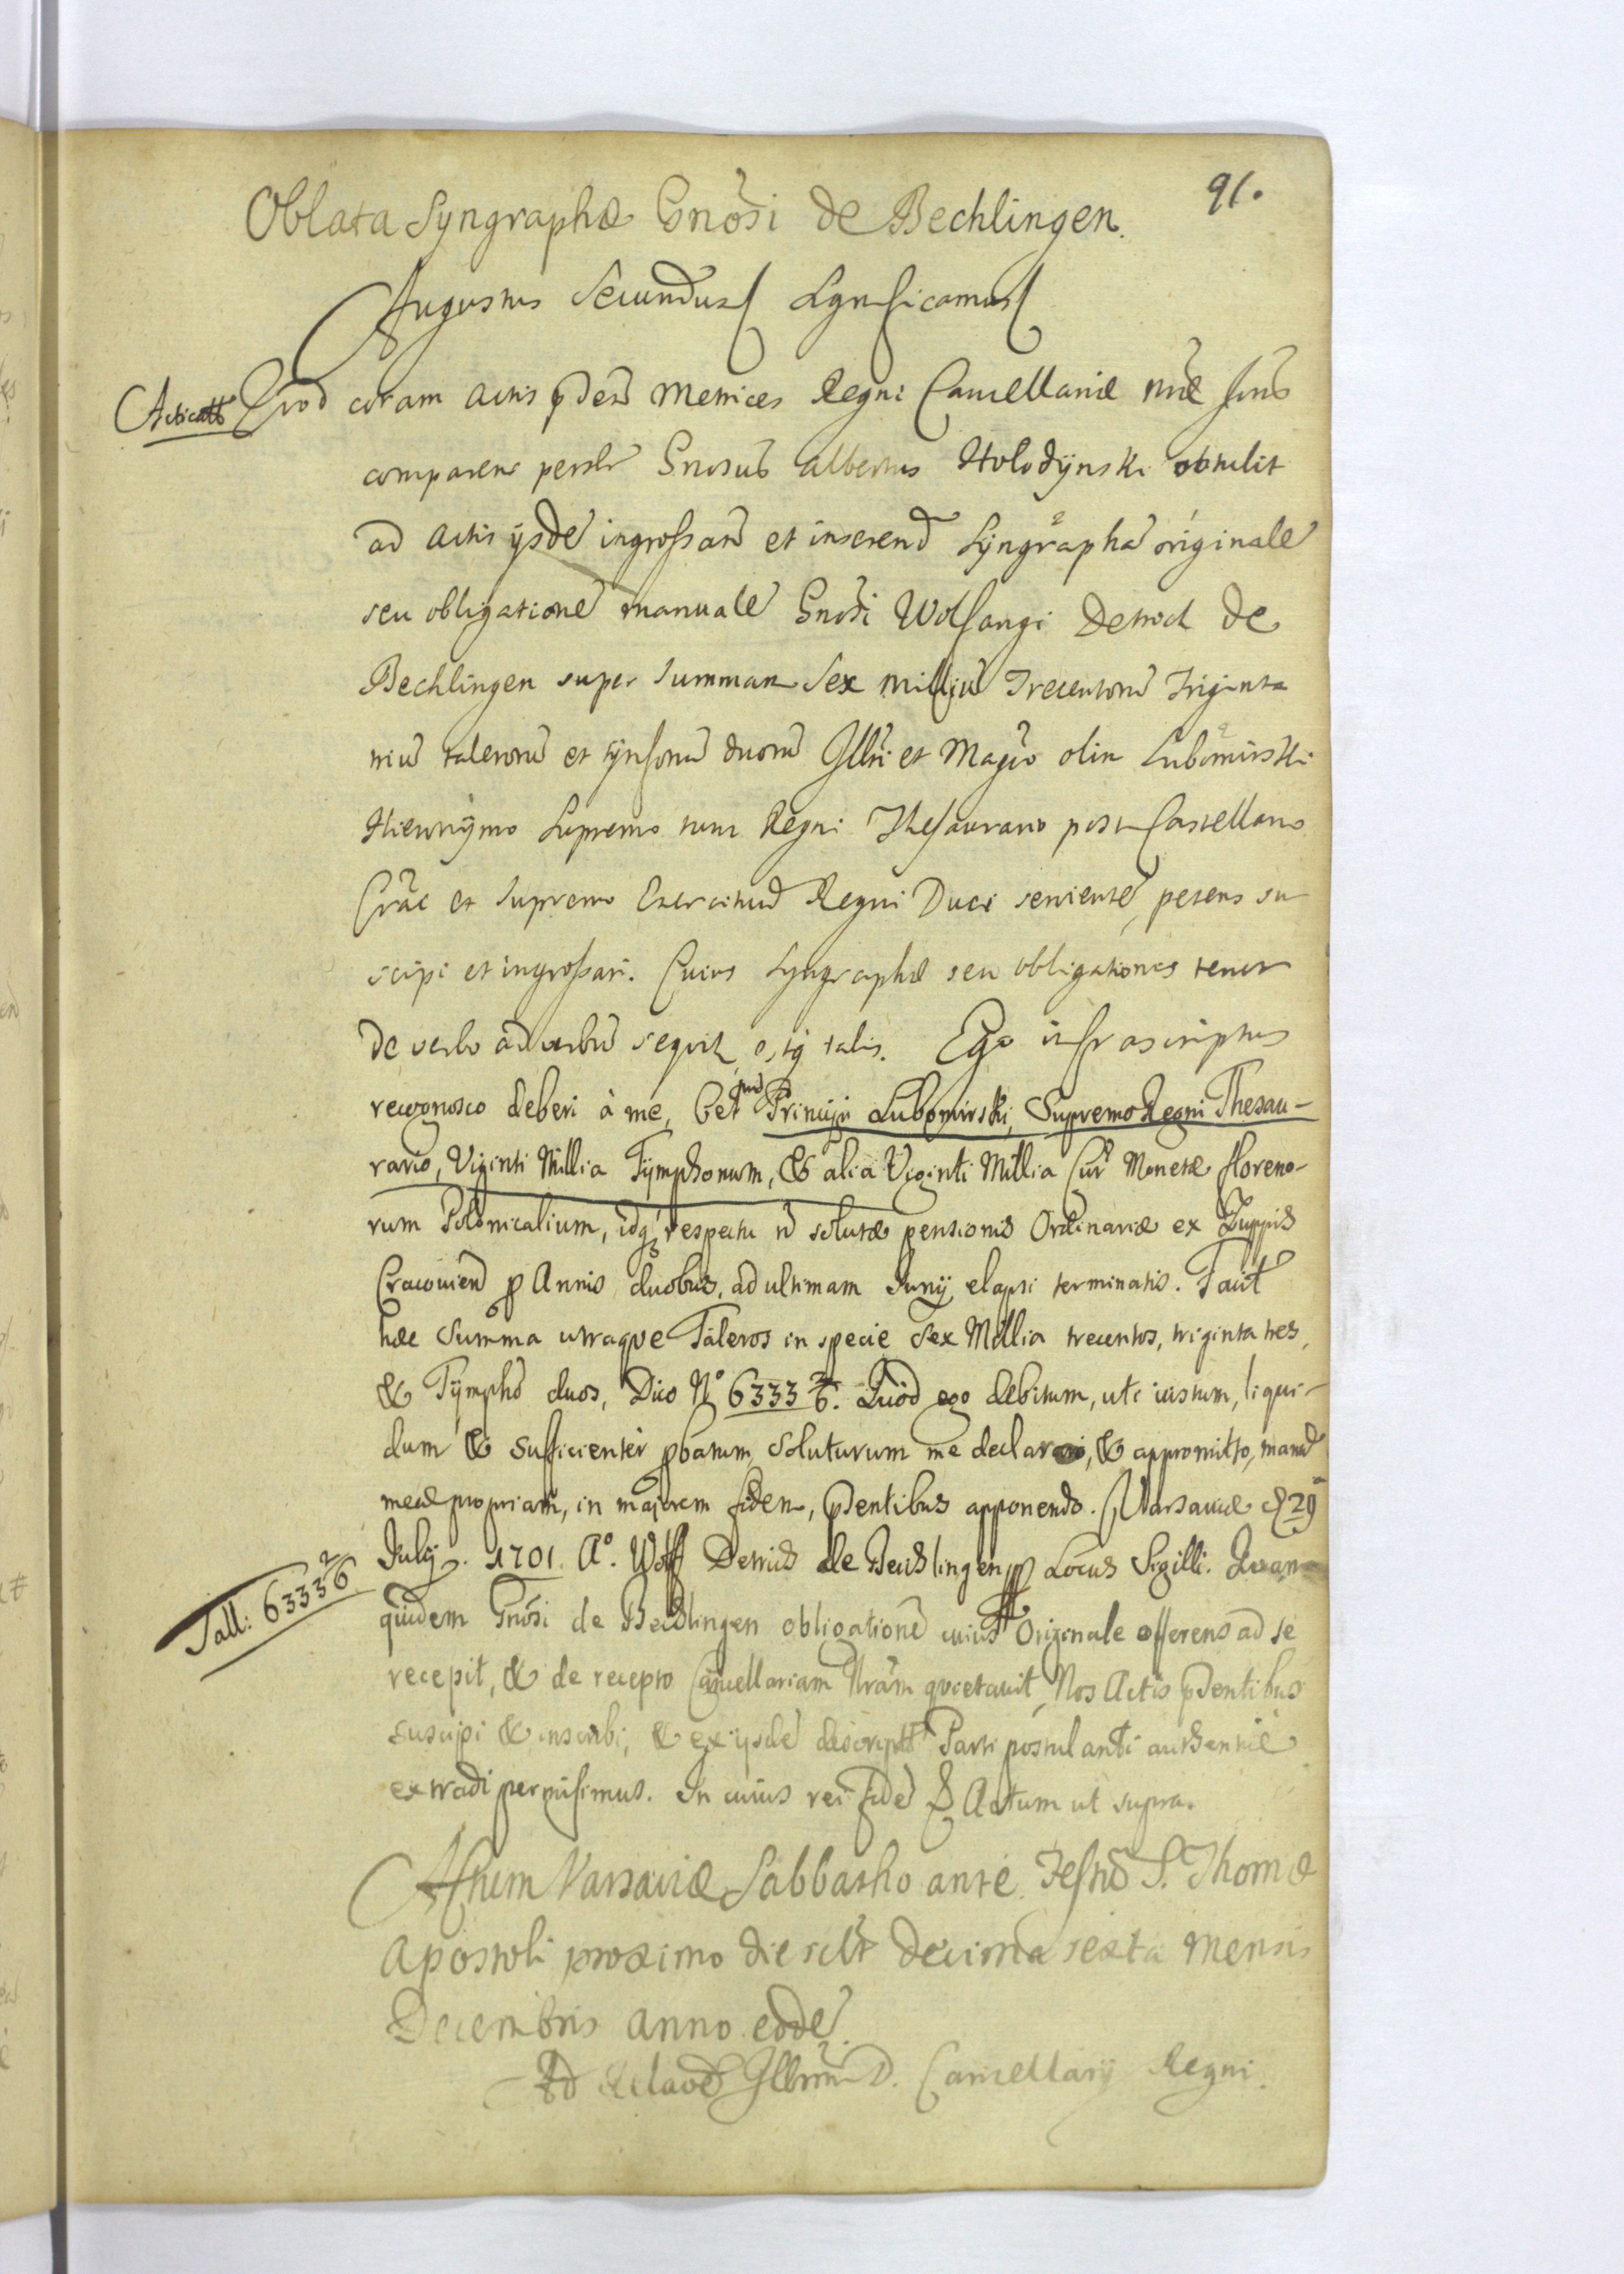 91.
Oblata Syngraphæ Gnosi de Bechlingen.
Augustus Secundus Sgnificamus
Acticatt Quod coram actis pden Metrices Regni Cancellariæ nræ
comparens persler Gnosus Albertus Holodÿnski obtulit
ad actis ÿsde ingrossand et inserend Sÿngrapha originale
seu obligatione manuale Gnosi Wolfangi Detrich de
Bechlingen super Summam Sex milliu Trecentoru Triginta
triu taleroru et tÿnforu duoru Illri et Magco olim Lubomirski
Hieronÿmo Supremo tum Regni Thesaurario post Castellano
Crac et Supremo Exercituu Regni Duci seruiente, petens su
scipi et ingrossari. Cuius Syngraphæ seu obligationis tenor
de verbo ad verbu sequit, estq talis. Ego infrascriptus
recognosco deberi à me, Cels Principi Lubomirski, Supremo Regni Thesau-
rario, Viginti Millia Tÿmphonum, & alia Viginti Millia Cur Monetæ floreno-
rum Polonicalium, idq; respectu n solutæ pensionis Ordinariæ ex Zuppis
Cracouien p Annis duobus, ad ultimam Junÿ elapsi terminatis. Facit
hæc Summa utraque Taleros in specie Sex Millia trecentos, triginta tres,
& Tÿmpho duos, Dico No 6333 2/6. Quod ego debitum, uti iustum, liqui-
dum & sufficienter pbatum, soluturum me declaro, & appromitto, manu
meæ propriam, in majorem fidem, pntibus apponendo. Varsauiæ d 29
Julij. 1701. Ao. Wolff Detrich de Bechlingen Locus Sigilli. Quam
Tall: 6333 2/6
quidem Gnosi de Bechlingen obligatione cuius Originale offerens ad se
recepit, & de recepto Cancellariam Nram quietauit, Nos Actis pntibus
suscipi & inscribi, & ex ijsde descript Parti postulanti authentice
extradi permisimus. In cuius rei fide & Actum ut supra.
Actum Varsauiæ Sabbatho ante Festu S. Thomæ
Apostoli proximo die scilt decima sexta mensis
Decembris anno eode.
Ad Relaoe Illrmi D. Cancellarij Regni.